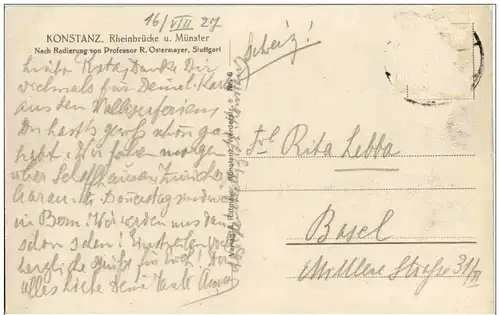 16/VIII 27
KONSTANZ, Rheinbrücke u. Münster
Nach Radierung von Professor R. Ostermayer, Stuttgart
Schweiz!
Liebe Rita, Danke Dir
vielmals für Deine Karte
aus den Walliserferien
Du hast's gewiß schön ge
habt. Wir fahren morgen
über Schaffhausen, Zürich
Donnerstag sind wir
in Bern. Wir werden uns dann
schon sehen!
herzliche Grüße für Euch! Dir
alles liebe Deine Tante
Frl Rita Lebba
Basel
Mittlere Straße 31/II